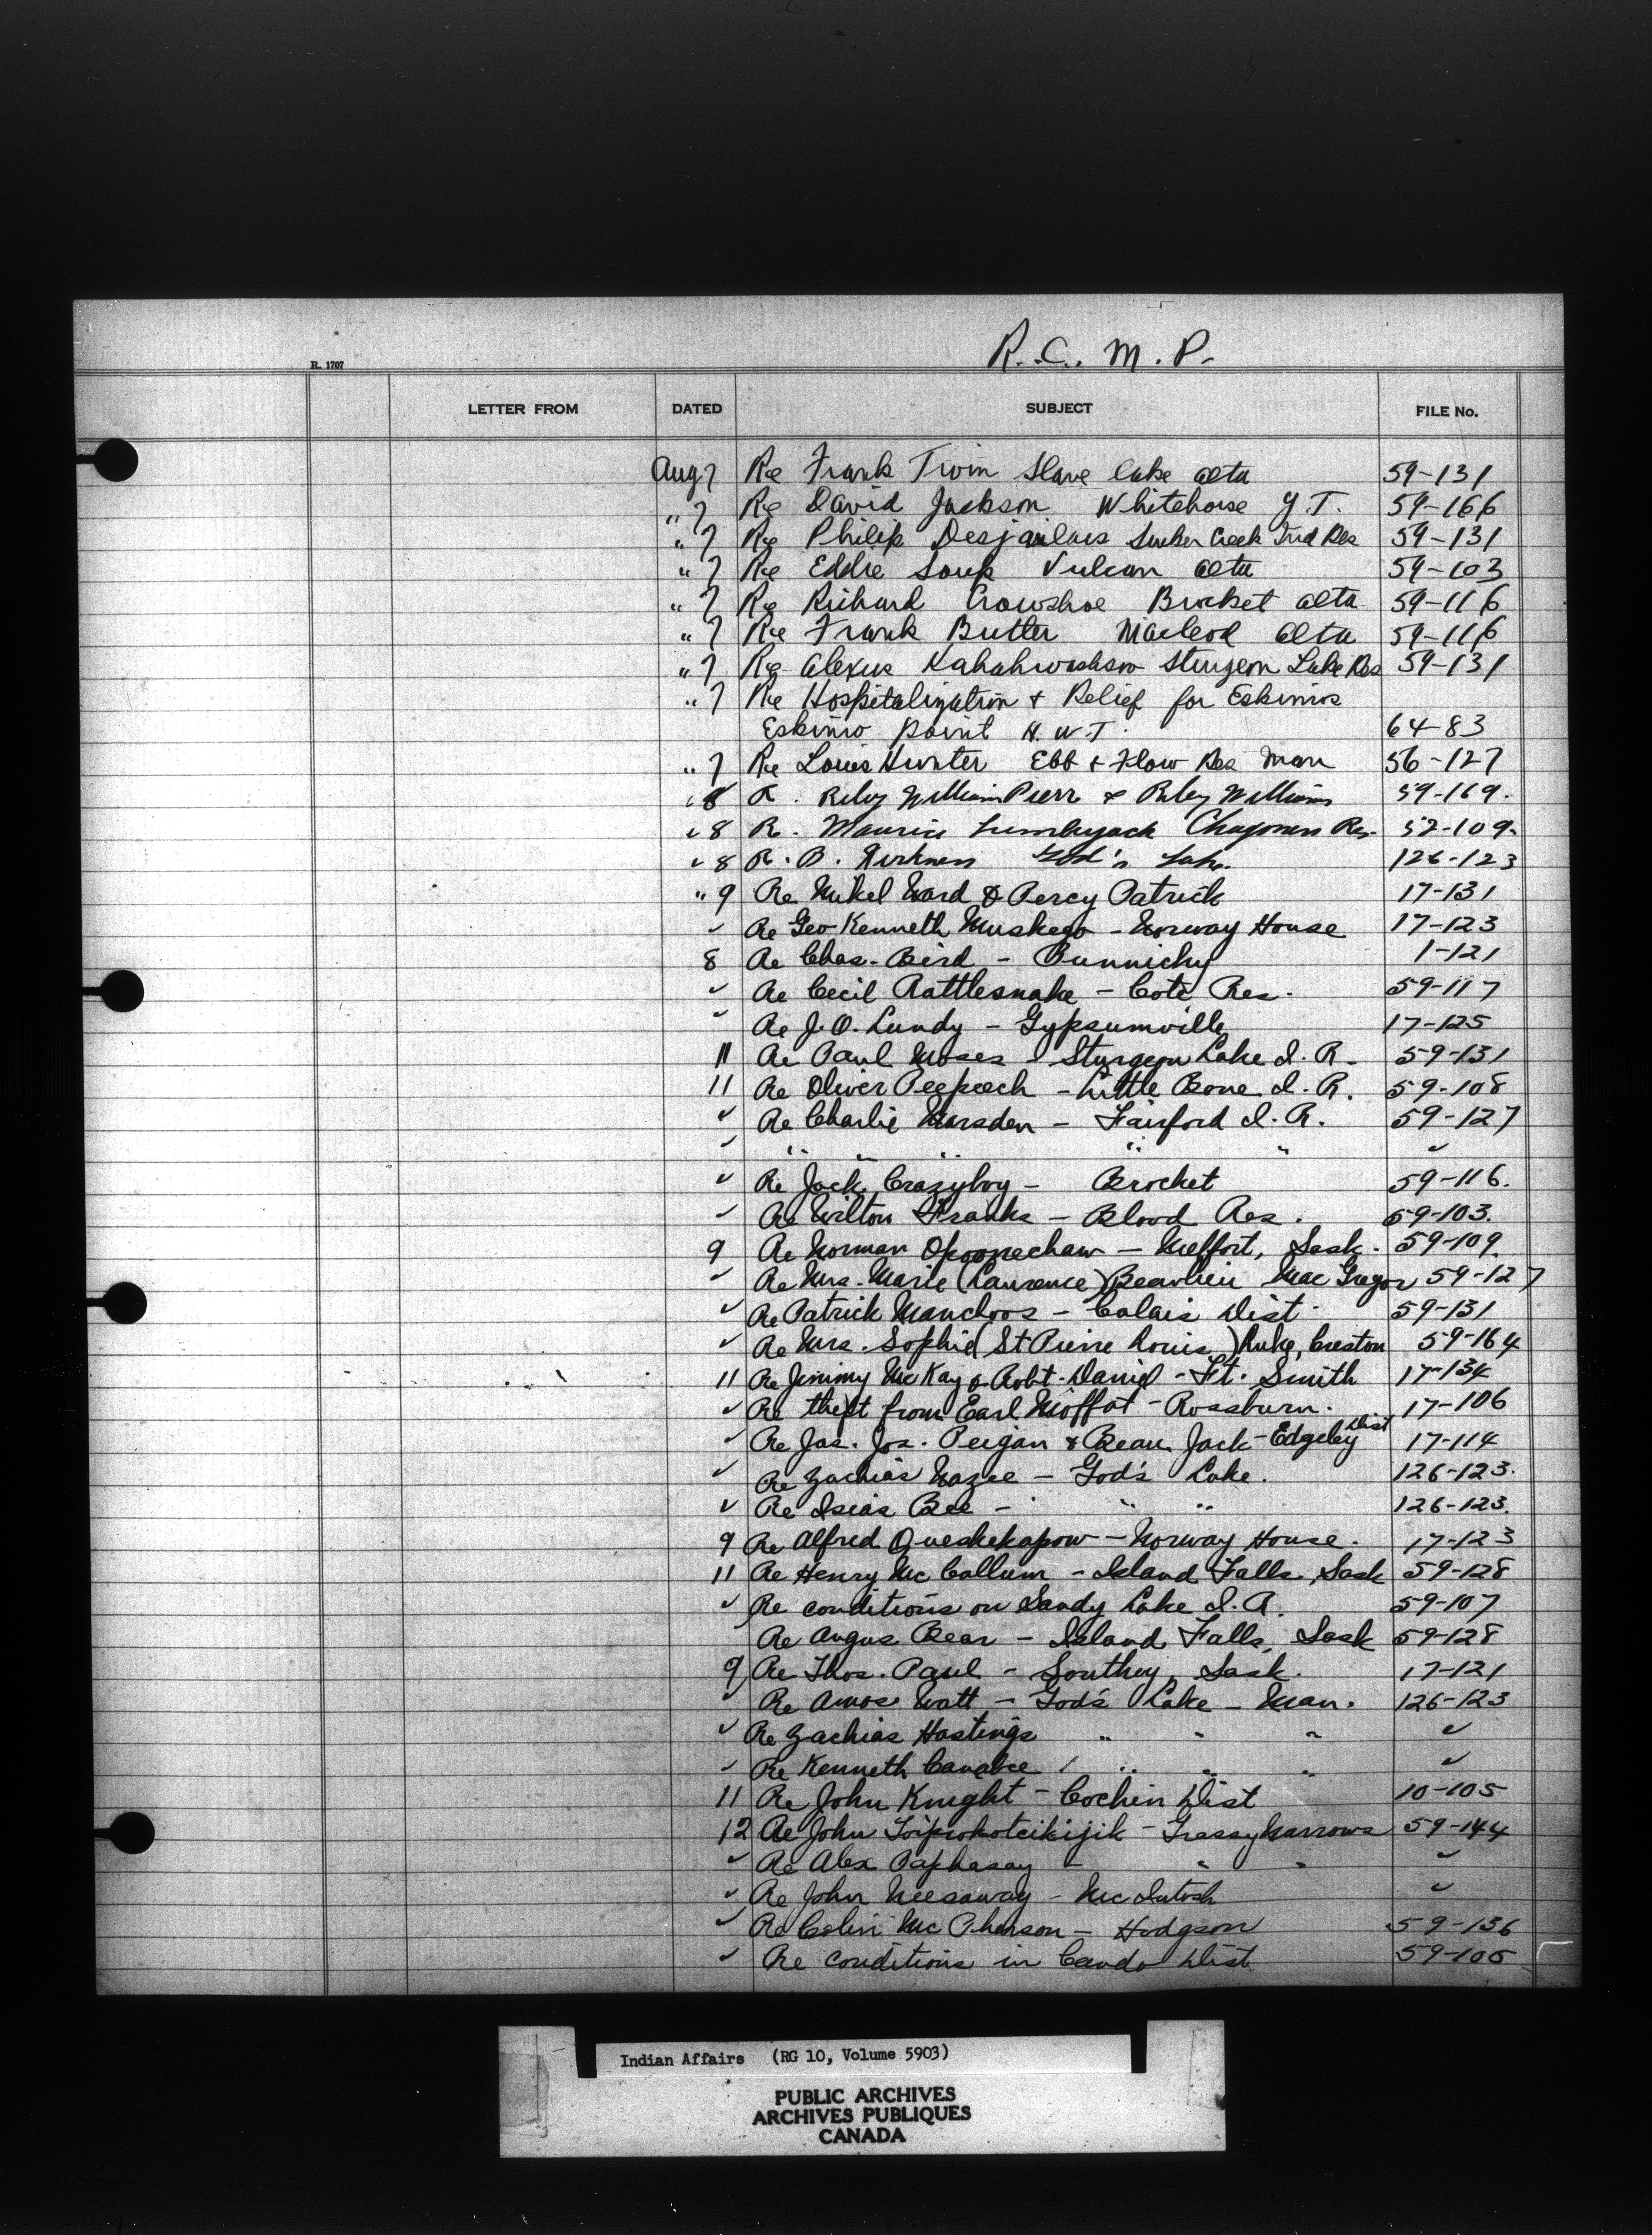 R.C.M.P.
R. 1707
LETTER FROM DATED SUBJECT FILE No.
Aug 7 Re Frank Twin Slave lake Alta 59-131
" 7 Re David Jackson Whitehorse Y.T. 59-166
" 7 Re Philip Desjarlais Sucker Creek Ind Res 59-131
" 7 Re Eddie Soup Vulcan Alta 59-103
" 7 Re Richard Crowshoe Brocket Alta 59-116
" 7 Re Frank Butler Macleod Alta 59-116
" 7 Re Alexus Sturgeon Lake Res 59-131
" 7 Re Hospitalization + Relief for Eskimos
Eskimo Point N.W.T. 64-83
" 7 Re Louis Hunter Ebb + Flow Res Man 56-127
" 8 R. Riley William Pierr & Riley Williams 59-169.
" 8 R. Maurice Lumberjack Res. 52-109.
" 8 R. B. God's Lake. 126-123
" 9 Re Mikel Ward & Percy Patrick 17-131
" Re Geo Kenneth Muskego - Norway House 17-123
8 Re Chas. Bird - Punnichy 1-121
" Re Cecil Rattlesnake - Cote Res. 59-117
" Re J.O. Lundy - Gypsumville 17-125
11 Re Paul Moses - Sturgeon Lake I.R. 59-131
11 Re Oliver Peepeech - Little Bone I.R. 59-108
" Re Charlie Marsden - Fairford I.R. 59-127
" " " " " " "
" Re Jack Crazyboy - Brocket 59-116.
" Re Wilton Franks - Blood Res. 59-103.
9 Re Norman Opoonechaw - Melfort, Sask. 59-109.
" Re Mrs. Marie (Laurence) Beaulieu Mac Gregor 59-127
" Re Patrick Manchoos - Calais Dist. 59-131
" Re Mrs. Sophie (St Pierre Louis) Luke, Creston 59-164
11 Re Jimmy McKay & Robt. Daniel - Ft. Smith 17-134
" Re theft from Earl Moffat - Rossburn. 17-106
" Re Jas. Jos. Peigan & Bean Jack - Edgeley Dist 17-114
" Re Zachias Wazee - God's Lake. 126-123.
" Re Isias Bee - " " 126-123.
9 Re Alfred Queskekapow - Norway House. 17-123
11 Re Henry McCallum - Island Falls, Sask 59-128
" Re conditions on Sandy Lake I.R. 59-107
Re Angus Bear - Island Falls, Sask 59-128
9 Re Thos. Paul - Southey, Sask. 17-121
" Re Amos Watt - God's Lake - Man. 126-123
" Re Zachias Hastings " " " "
" Re Kenneth Canabee " " " "
11 Re John Knight - Cochin Dist 10-105
12 Re John - Grassy Narrows 59-144
" Re Alex Paphasay - " " "
" Re John Neesaway - McIntosh "
" Re Colin McPherson - Hodgson 59-136
" Re conditions in Cando Dist 59-105
Indian Affairs (RG 10, Volume 5903)
PUBLIC ARCHIVES
ARCHIVES PUBLIQUES
CANADA